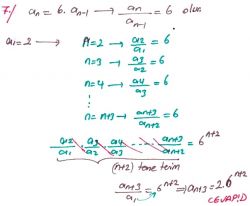 7/ aₙ = 6. aₙ₋₁ → aₙ/aₙ₋₁ = 6 olur.
a₁=2 → n=2 → a₂/a₁ = 6
n=3 → a₃/a₂ = 6
n=4 → a₄/a₃ = 6
⋮
n = n+3 → aₙ₊₃/aₙ₊₂ = 6
a₂/a₁ · a₃/a₂ · a₄/a₃ · … · aₙ₊₃/aₙ₊₂ = 6ⁿ⁺²
(n+2) tane terim
aₙ₊₃/a₁ = 6ⁿ⁺² ⇒ aₙ₊₃ = 2.6ⁿ⁺²
CEVAP D